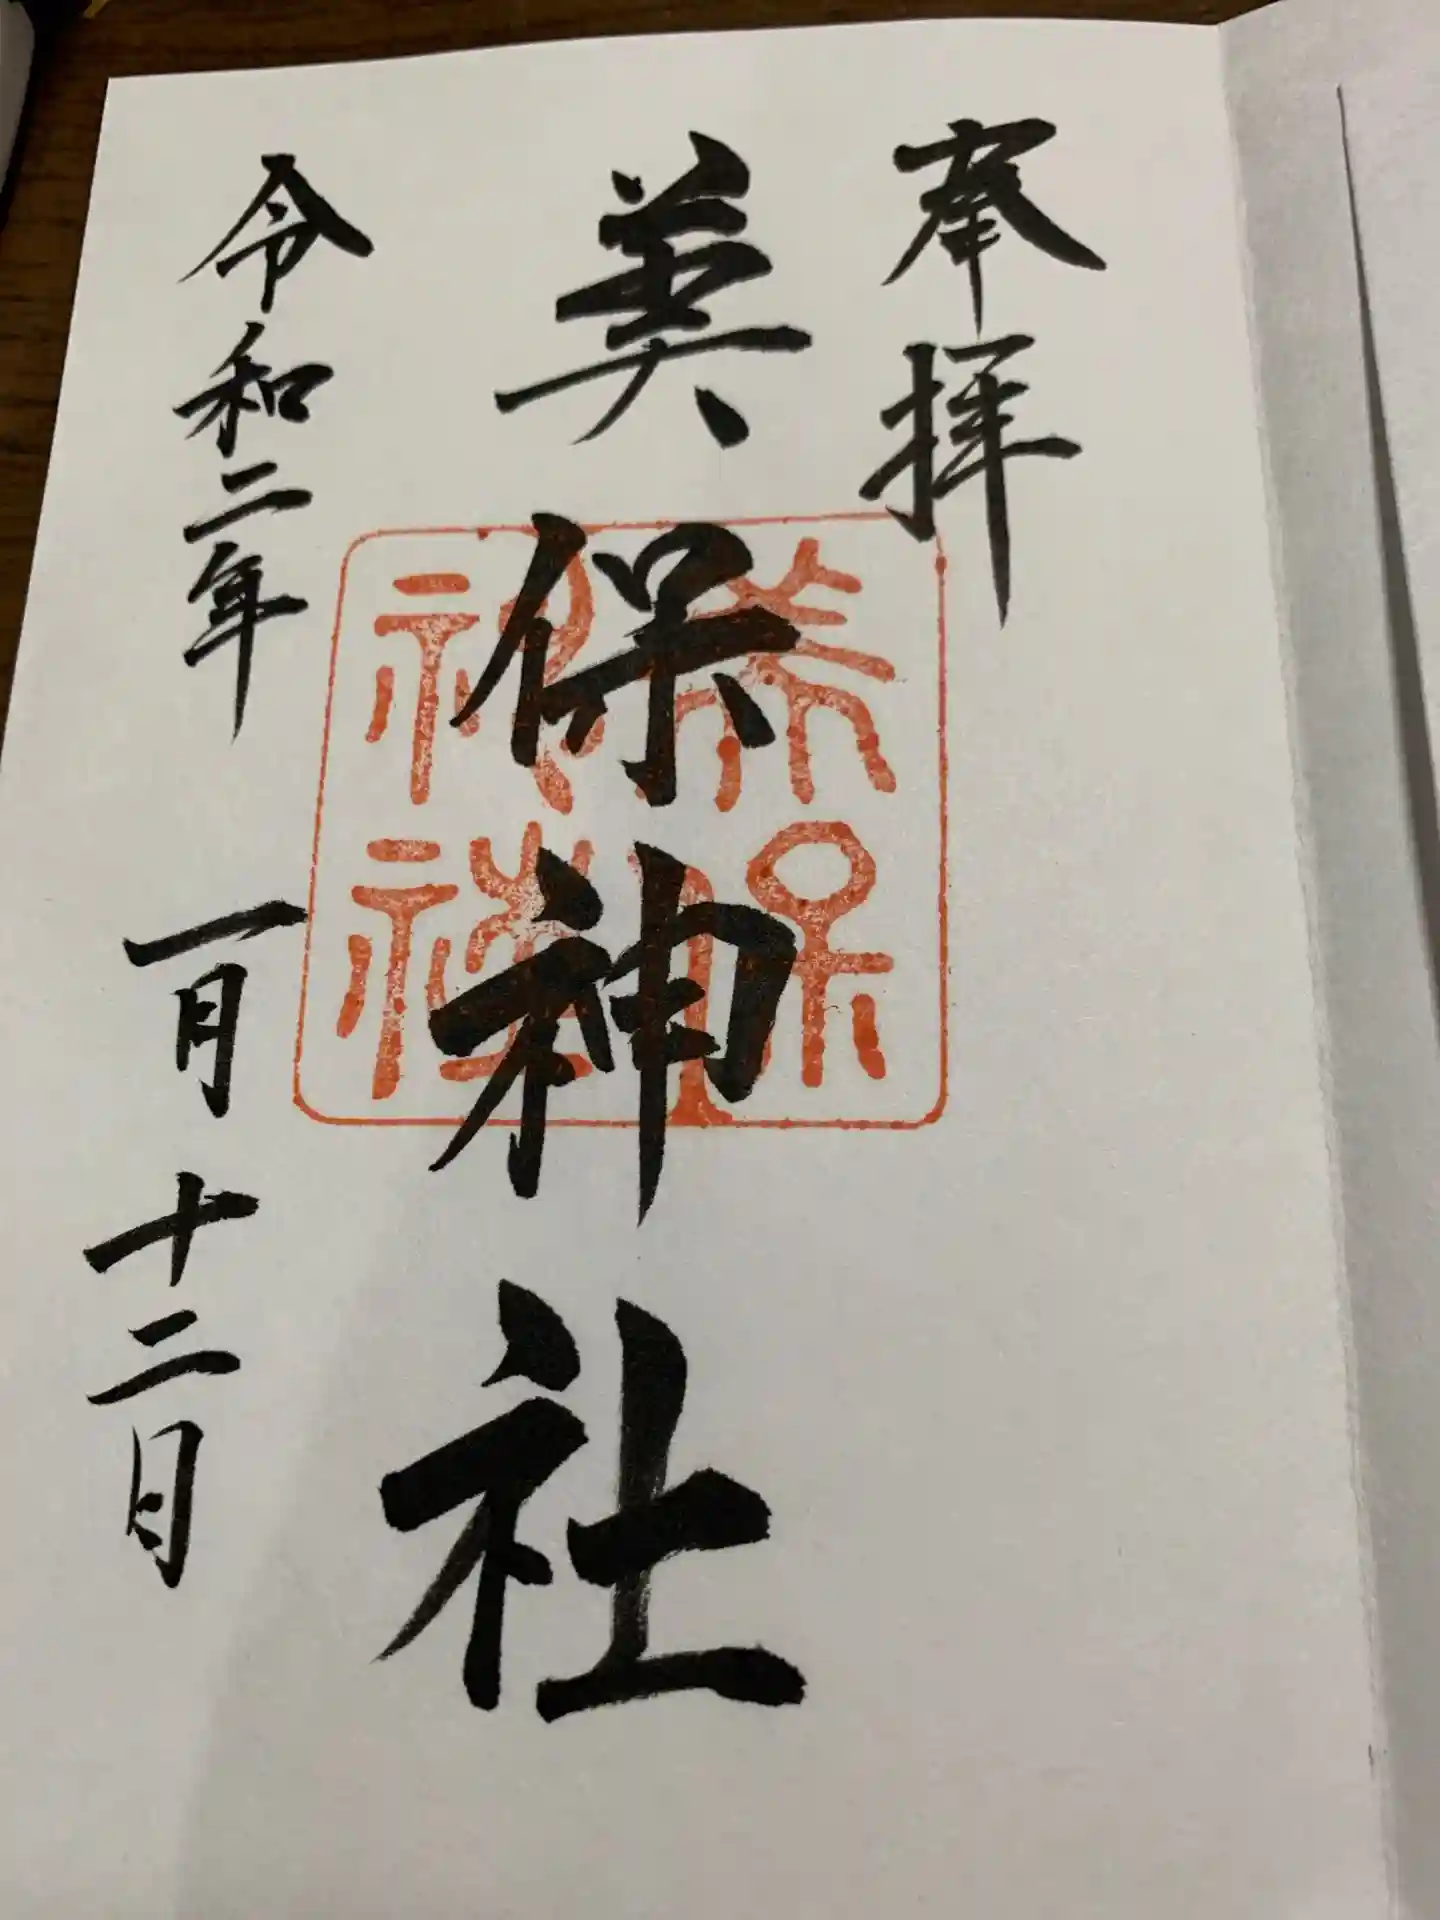 奉拝
美保神社
美保神社
令和二年一月十二日